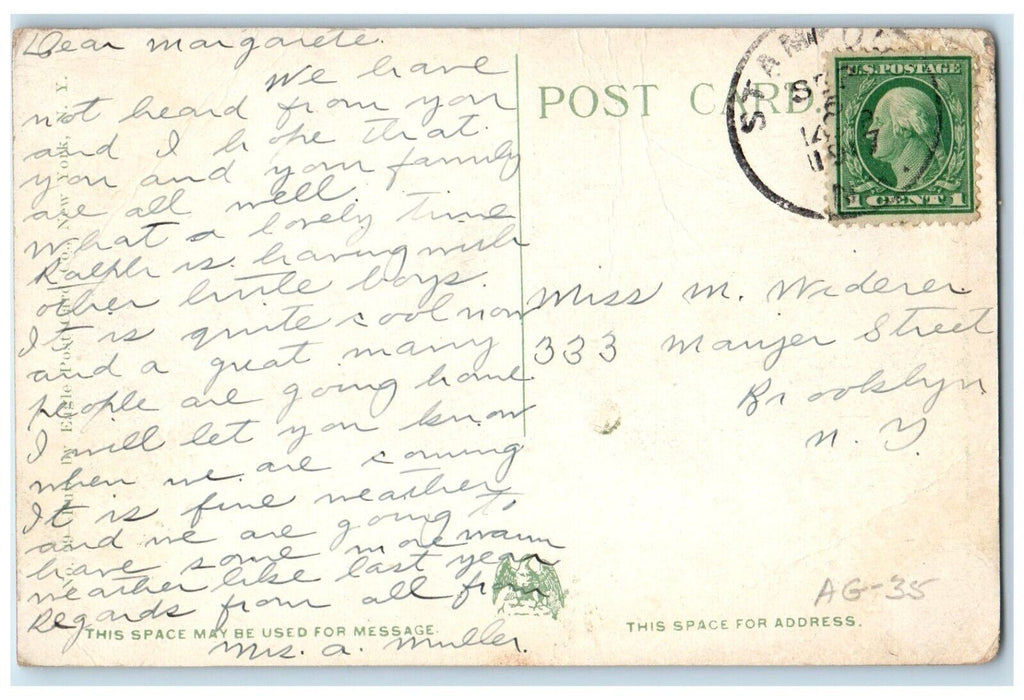 Dear Margarete.
We have
not heard from you
and I hope that
you and your family
are all well.
What a lovely time
Ralph is having with
other little boys.
It is quite cool now
and a great many
people are going home.
I will let you know
when we are coming
It is fine weather
and we are going to
have some more warm
weather like last year
Regards from all from
Mrs. A. Muller.
POST CARD
STAM
U.S. POSTAGE
1 CENT 1
Miss M. Wederer
333 Maujer Street
Brooklyn
N. Y.
AG-35
THIS SPACE MAY BE USED FOR MESSAGE.
THIS SPACE FOR ADDRESS.
by Eagle Post Card Co., New York, N. Y.